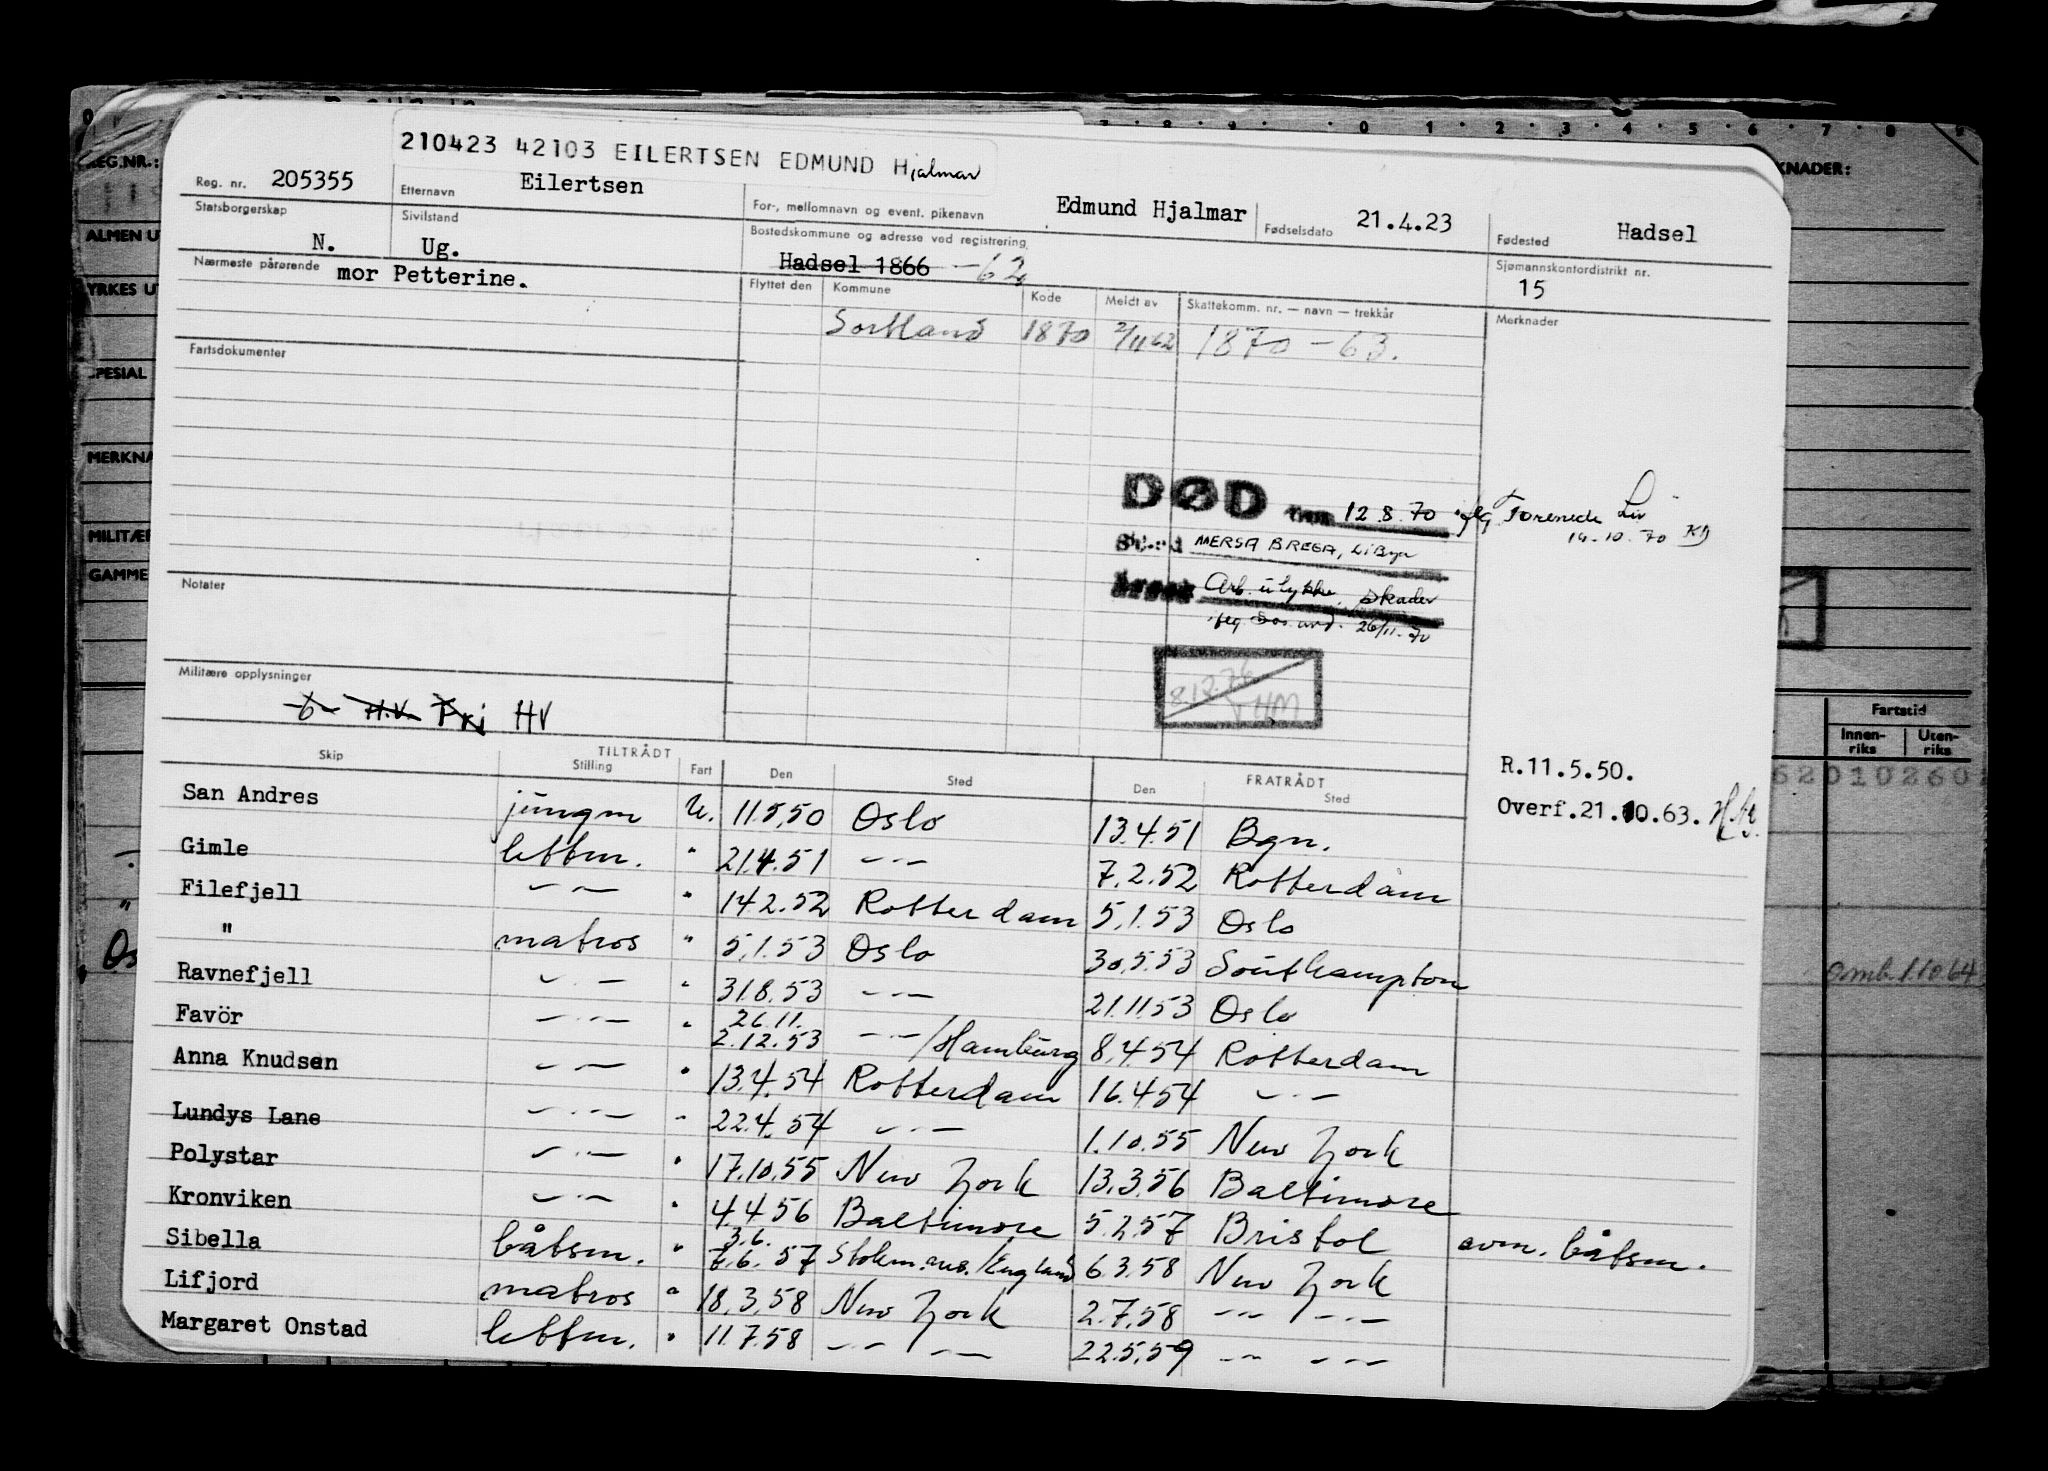 210423 42103 EILERTSEN EDMUND Hjalmar
Reg. nr. 205355 Etternavn Eilertsen For-, mellomnavn og event. pikenavn Edmund Hjalmar Fødselsdato 21.4.23 Fødested Hadsel
Statsborgerskap N. Sivilstand Ug. Bostedskommune og adresse ved registrering Hadsel 1866 -62 Sjømannskontordistrikt nr. 15
Nærmeste pårørende mor Petterine.
Flyttet den Kommune Kode Meldt av Skattekomm. nr. — navn — trekkår Merknader
Sortland 1870 2/11 62 1870 - 63.
Fartsdokumenter
DØD 12.8.70 iflg. Forenede Liv
14.10.70 KJ
Sted MERSA BREGA, Libya
Årsak Arb. ulykke, skader
iflg Dos. and. 26/11-70
Notater
8.12.76 HM
Militære opplysninger
6 H.V. Fri HV
R.11.5.50.
Overf.21.10.63.
Skip TILTRÅDT Stilling Fart Den Sted FRATRÅDT Den Sted
San Andres jungm U. 11.5.50 Oslo 13.4.51 Bgn.
Gimle lettm. " 21.4.51 —"— 7.2.52 Rotterdam
Filefjell —"— " 14.2.52 Rotterdam 5.1.53 Oslo
" matros " 5.1.53 Oslo 30.5.53 Southampton
Ravnefjell —"— " 31.8.53 —"— 21.11.53 Oslo
Favör —"— " 26.11. 2.12.53 —"—/Hamburg 8.4.54 Rotterdam
Anna Knudsen —"— " 13.4.54 Rotterdam 16.4.54 —"—
Lundys Lane —"— " 22.4.54 —"— 1.10.55 New York
Polystar —"— " 17.10.55 New York 13.3.56 Baltimore
Kronviken —"— " 4.4.56 Baltimore 5.2.57 Bristol avm. båtsm.
Sibella båtsm. " 3.6. 7.6.57 Stokm.nes./England 6.3.58 New York
Lifjord matros " 18.3.58 New York 2.7.58 —"— —"—
Margaret Onstad lettm. " 11.7.58 —"— —"— 22.5.59 —"— —"—
REG.NR.:
ALMEN U
YRKES U
SPESIAL
MERKNA
MILITÆR
GAMME
KNADER:
Fartstid
Innen-riks Uten-riks
62010260
Os
amb. 1.10.64